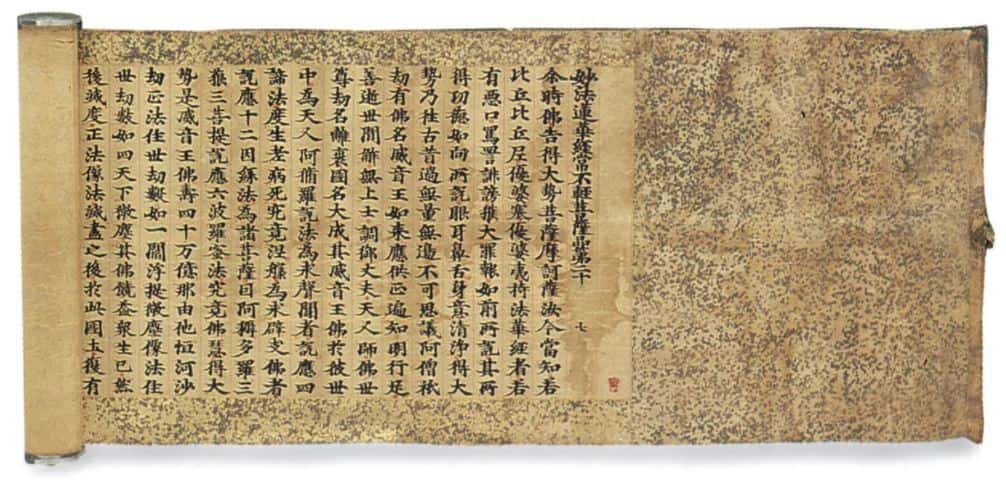 妙法蓮華經常不輕菩薩品第二十
七
尒時佛告得大勢菩薩摩訶薩汝今當知若
比丘比丘尼優婆塞優婆夷持法華經者若
有惡口罵詈誹謗獲大罪報如前所說其所
得功德如向所說眼耳鼻舌身意清淨得大
勢乃往古昔過無量無邊不可思議阿僧祇
劫有佛名威音王如來應供正遍知明行足
善逝世間解無上士調御丈夫天人師佛世
尊劫名離衰國名大成其威音王佛於彼世
中為天人阿修羅說法為求聲聞者說應四
諦法度生老病死究竟涅槃為求辟支佛者
說應十二因緣法為諸菩薩因阿耨多羅三
藐三菩提說應六波羅蜜法究竟佛慧得大
勢是威音王佛壽四十万億那由他恒河沙
劫正法住世劫數如一閻浮提微塵像法住
世劫數如四天下微塵其佛饒益衆生已然
後滅度正法像法滅盡之後於此國土復有